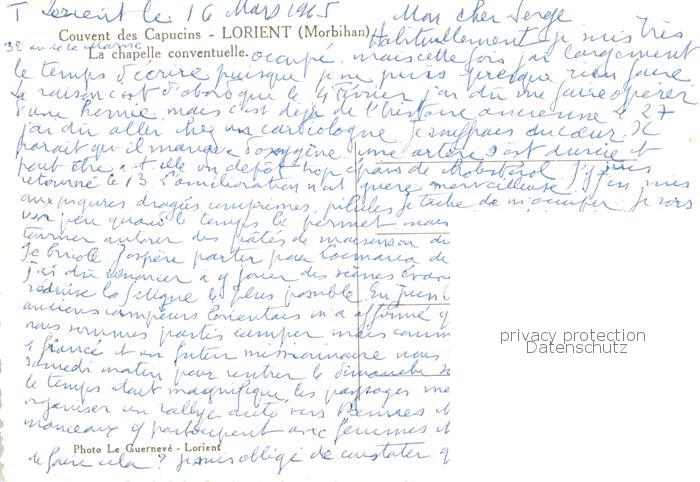 Lorient le 16 Mars 1965 Mon cher Serge
Couvent des Capucins - LORIENT (Morbihan)
La chapelle conventuelle.
32 av de la Marne
Habituellement je suis très
occupé. mais cette fois j'ai largement
le temps d'écrire puisque je ne puis presque rien faire
la raison c'est d'abord que le 4 février j'ai dû me faire opérer
d'une hernie. mais c'est déjà de l'histoire ancienne le 27
j'ai dû aller chez un cardiologue. Je souffrais du cœur. Il
parait qu'il manque d'oxygène. une artère s'est durcie et
peut être a-t-elle un dépôt trop épais de cholestérol. J'y suis
retourné le 13. L'amélioration n'est guère merveilleuse. J'en suis
aux piqures dragées comprimés, pilules je tâche de m'occuper. je sors
un peu quand le temps le permet mais
tourner autour des pâtés de maisons on
Je bricole. J'espère partir pour
j'ai dû renoncer à y jouer des scènes
réduise la fatigue le plus possible. En Juin
anciens campeurs Lorientais m'a affirmé
nous sommes partis camper mais comme
1 fiancé et un futur missionnaire nous
samedi matin pour rentrer le dimanche
le temps était magnifique, les paysages
organiser un rallye auto vers Rennes
manceaux y participent avec femmes et
Photo Le Guernevé - Lorient
de faire cela ? je suis obligé de constater
privacy protection
Datenschutz